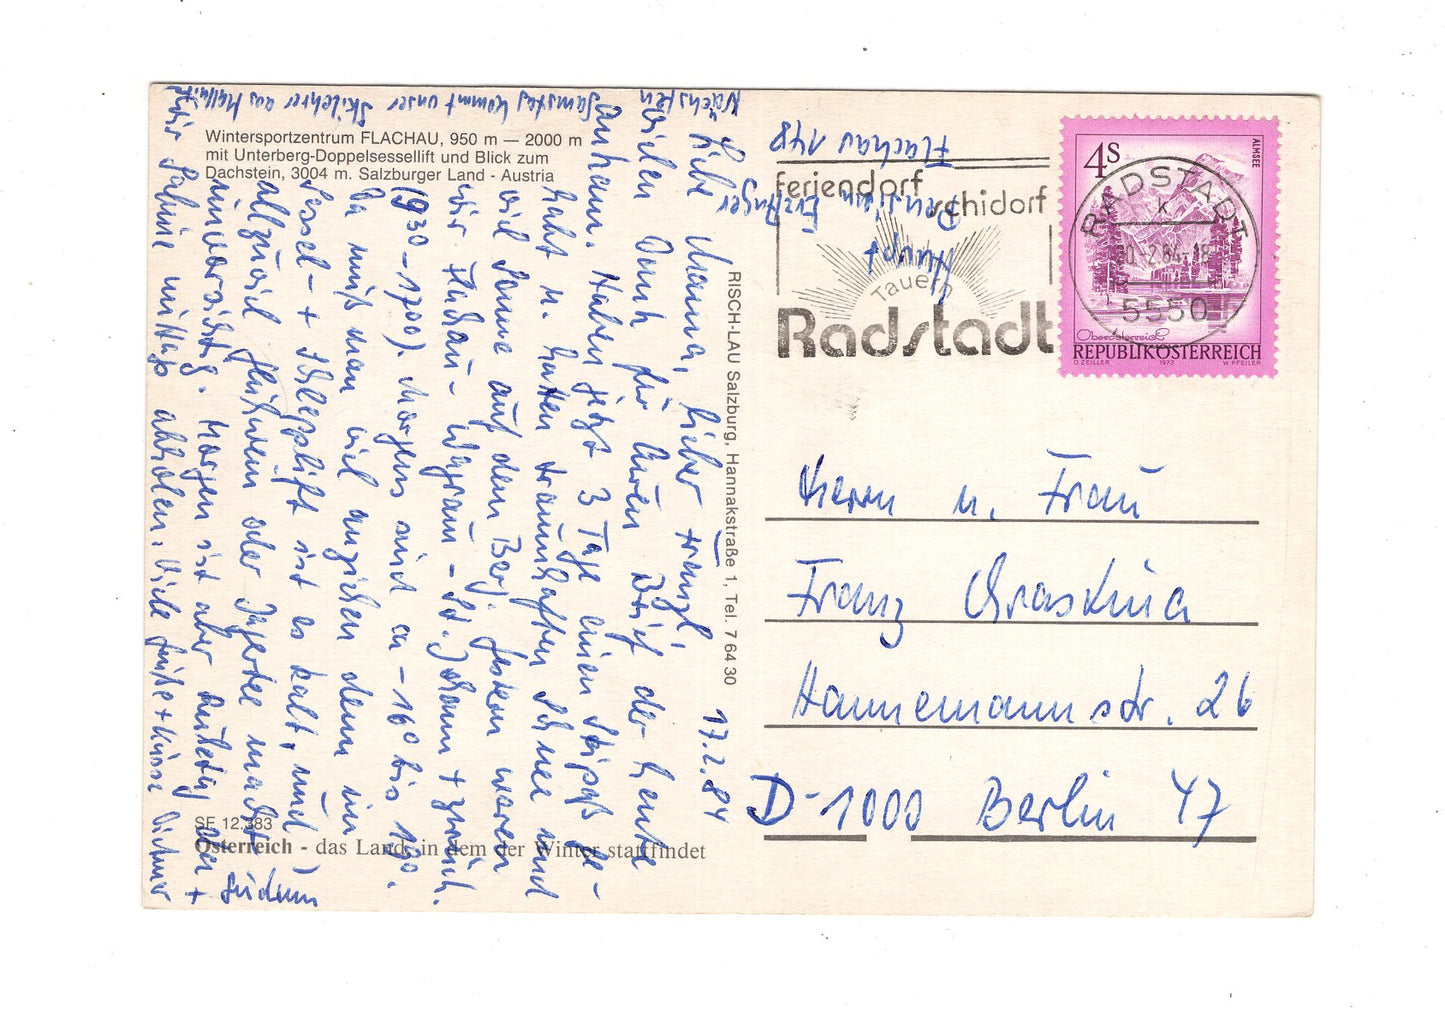 Wintersportzentrum FLACHAU, 950 m — 2000 m
mit Unterberg-Doppelsessellift und Blick zum
Dachstein, 3004 m. Salzburger Land - Austria
17.2.84
Liebe Mama, lieber Franzl,
vielen Dank für Euren Brief der heute
ankam. Haben jetzt 3 Tage einen Skipaß ge-
habt u. hatten traumhaften Schnee und
viel Sonne auf dem Berg. Gestern waren
wir Flachau - Wagrain - St. Johann + zurück.
(930 - 1700). Morgens sind ca - 16° bis 19°.
Da muß man viel anziehen denn im
Sessel- + Schlepplift ist es kalt, und
allzuviel Glühwein oder Jagertee macht
unvorsichtig. Morgen ist aber Ruhetag
wir Sabine mittag abholen. Viele Grüße + Küsse
Nächsten Samstag kommt unser Skilehrer aus
Flachau 148
Pension
RISCH-LAU Salzburg, Hannakstraße 1, Tel. 7 64 30
SF 12.383
Österreich - das Land, in dem der Winter stattfindet
feriendorf
schidorf
Tauern
Radstadt
RADSTADT
k
5550
4S
ALMSEE
Oberösterreich
REPUBLIK ÖSTERREICH
O. ZEILLER 1973 W. PFEILER
Herrn u. Frau
Franz
Hannemannstr. 26
D-1000 Berlin 47